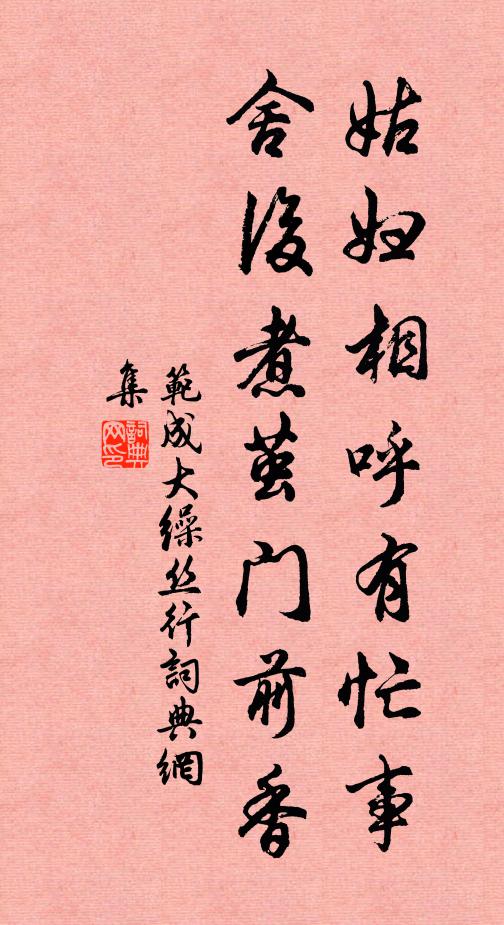 姑妇相呼有忙事
舍後煮茧门前香
範成大繰丝行詞典網
集
詞典
网印